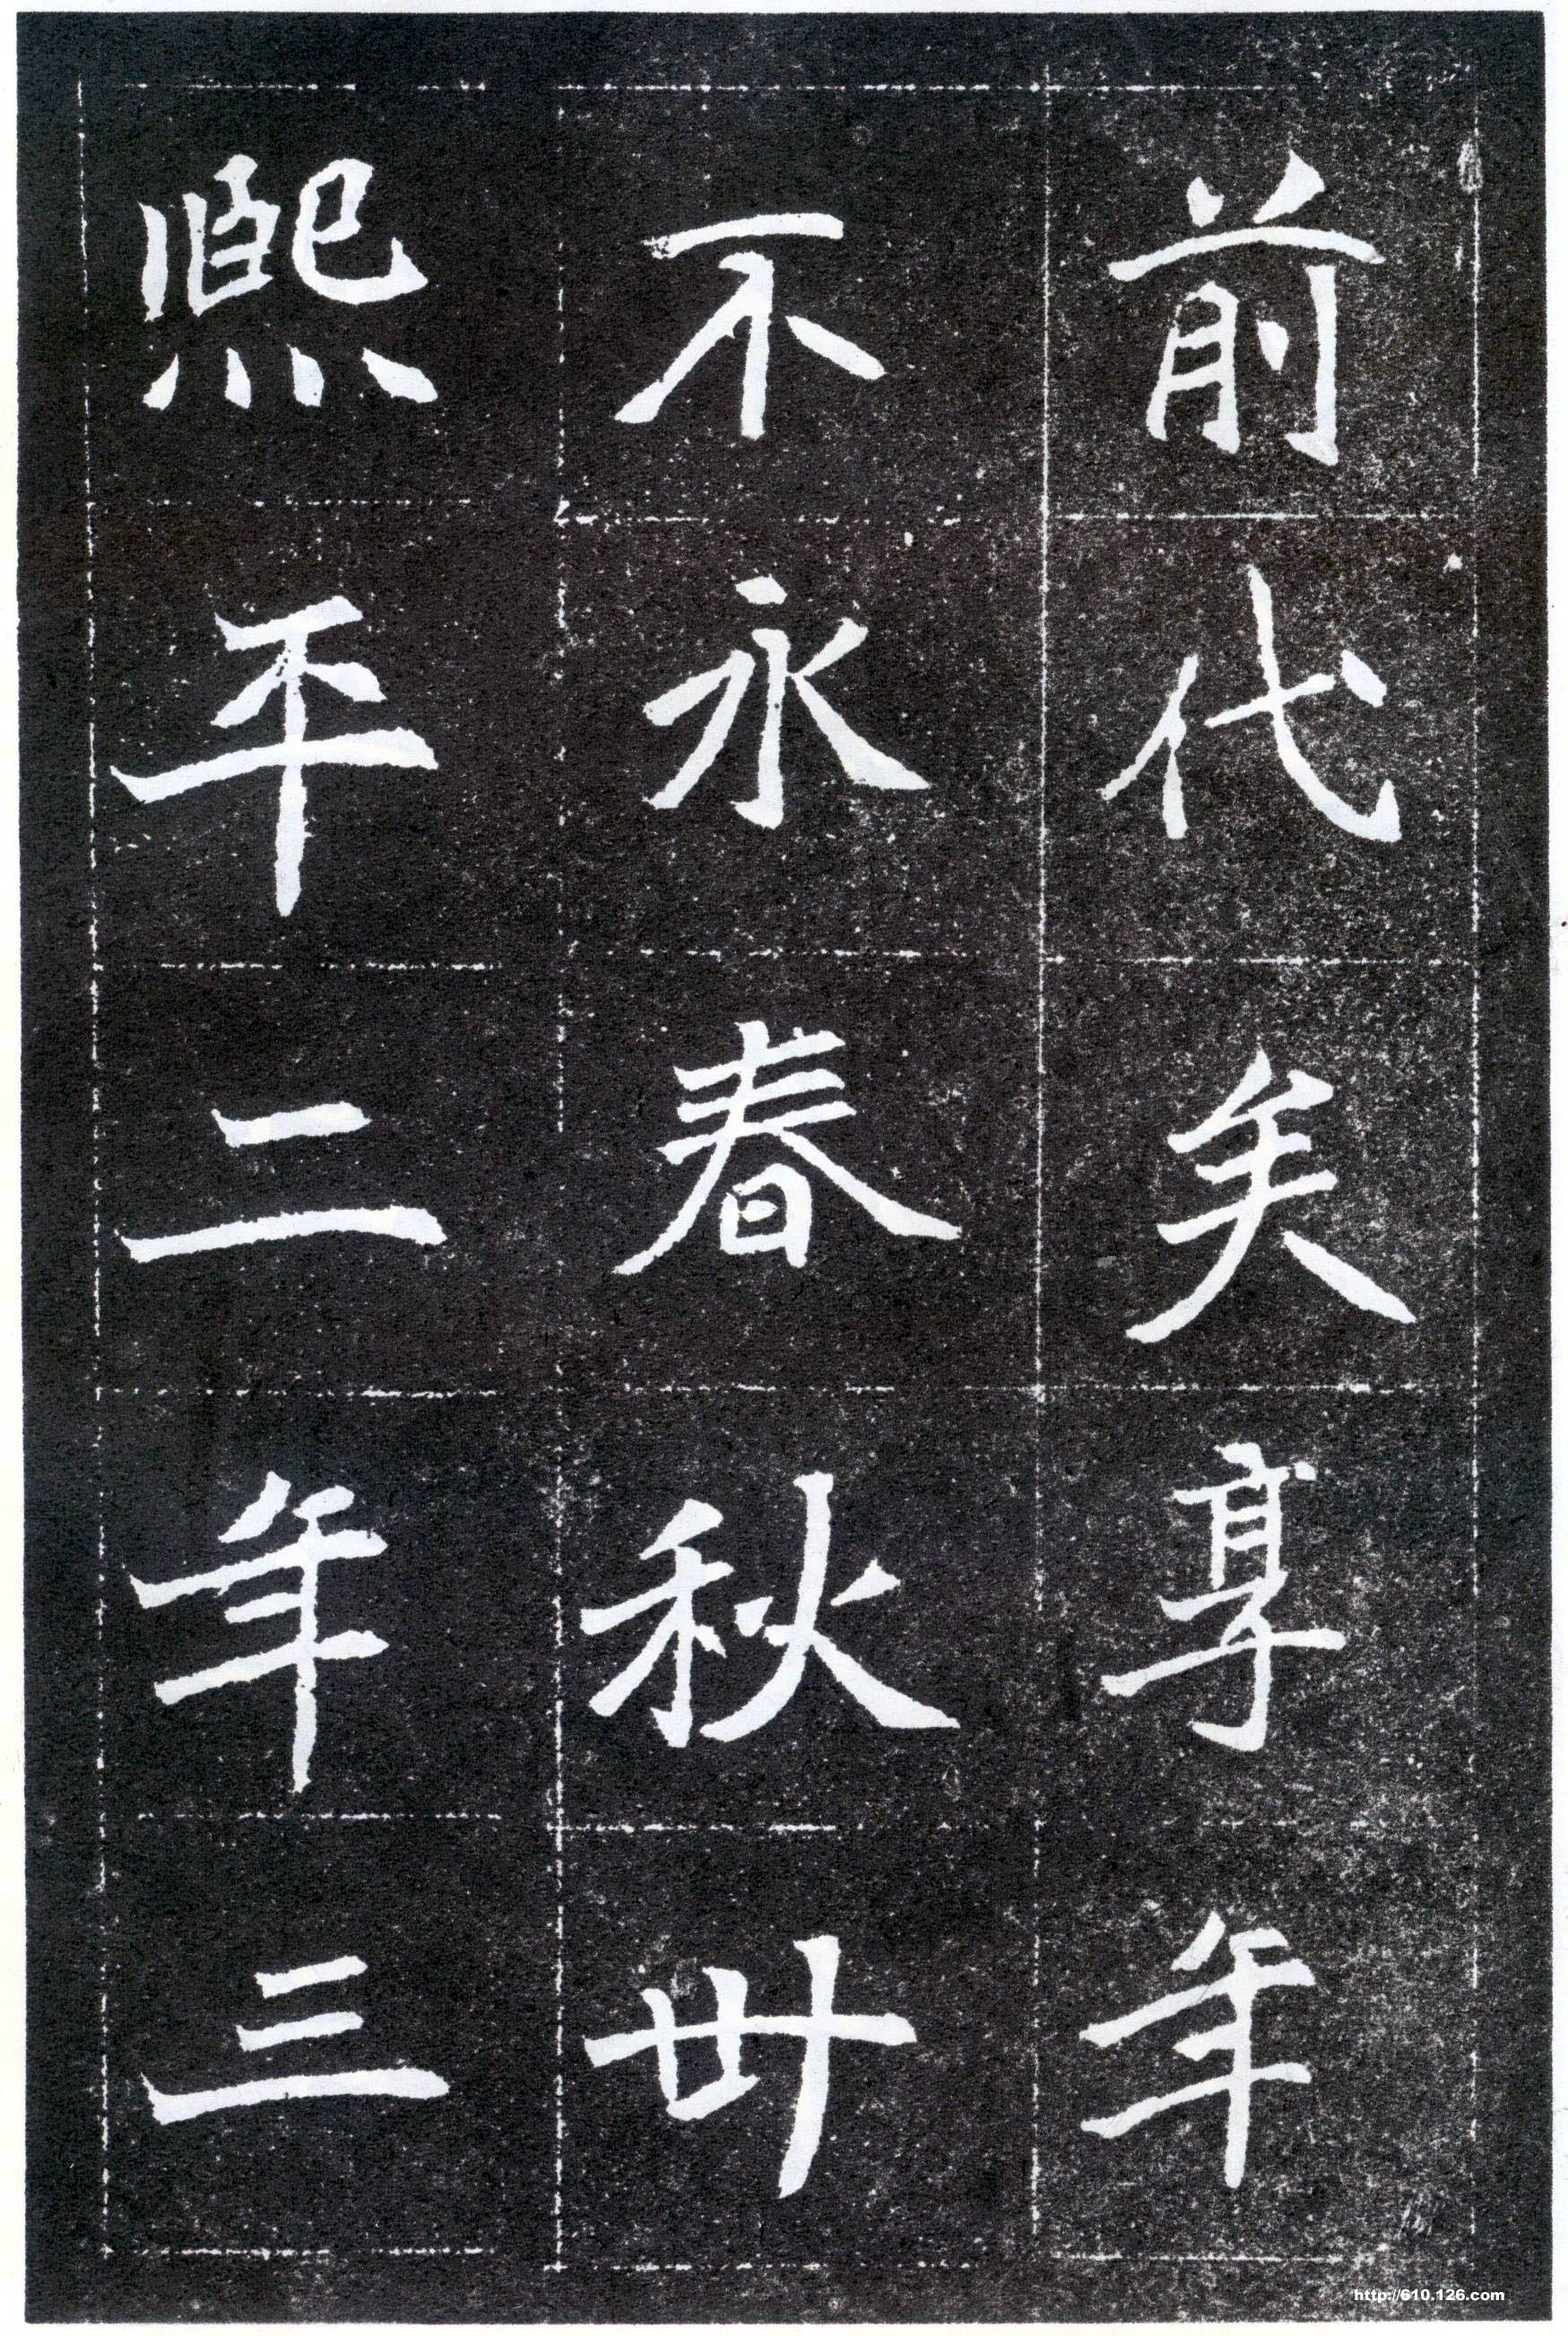 前代矣享年
不永春秋卅
熙平二年三
http://610.126.com